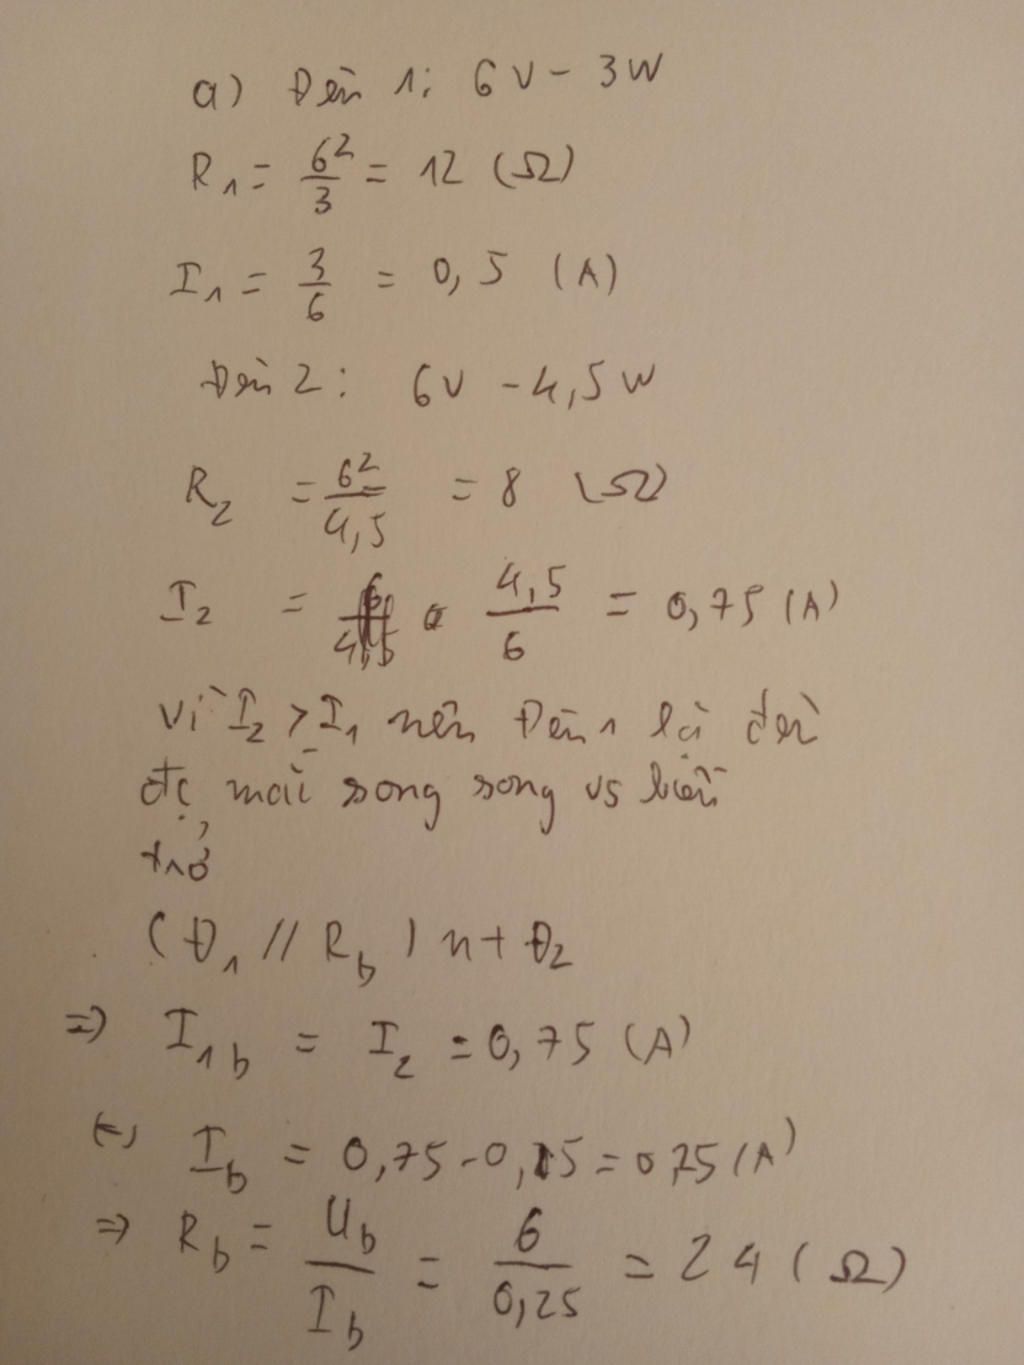 a) Đèn 1: 6V - 3W
R₁ = 6²/3 = 12 (Ω)
I₁ = 3/6 = 0,5 (A)
Đèn 2: 6V - 4,5W
R₂ = 6²/4,5 = 8 (Ω)
I₂ = 4,5/6 = 0,75 (A)
vì I₂ > I₁ nên Đèn 1 là đèn
đc mắc song song vs biến
trở
(Đ₁ // R_b) nt Đ₂
=> I₁b = I₂ = 0,75 (A)
I_b = 0,75 - 0,5 = 0,25 (A)
=> R_b = U_b/I_b = 6/0,25 = 24 (Ω)